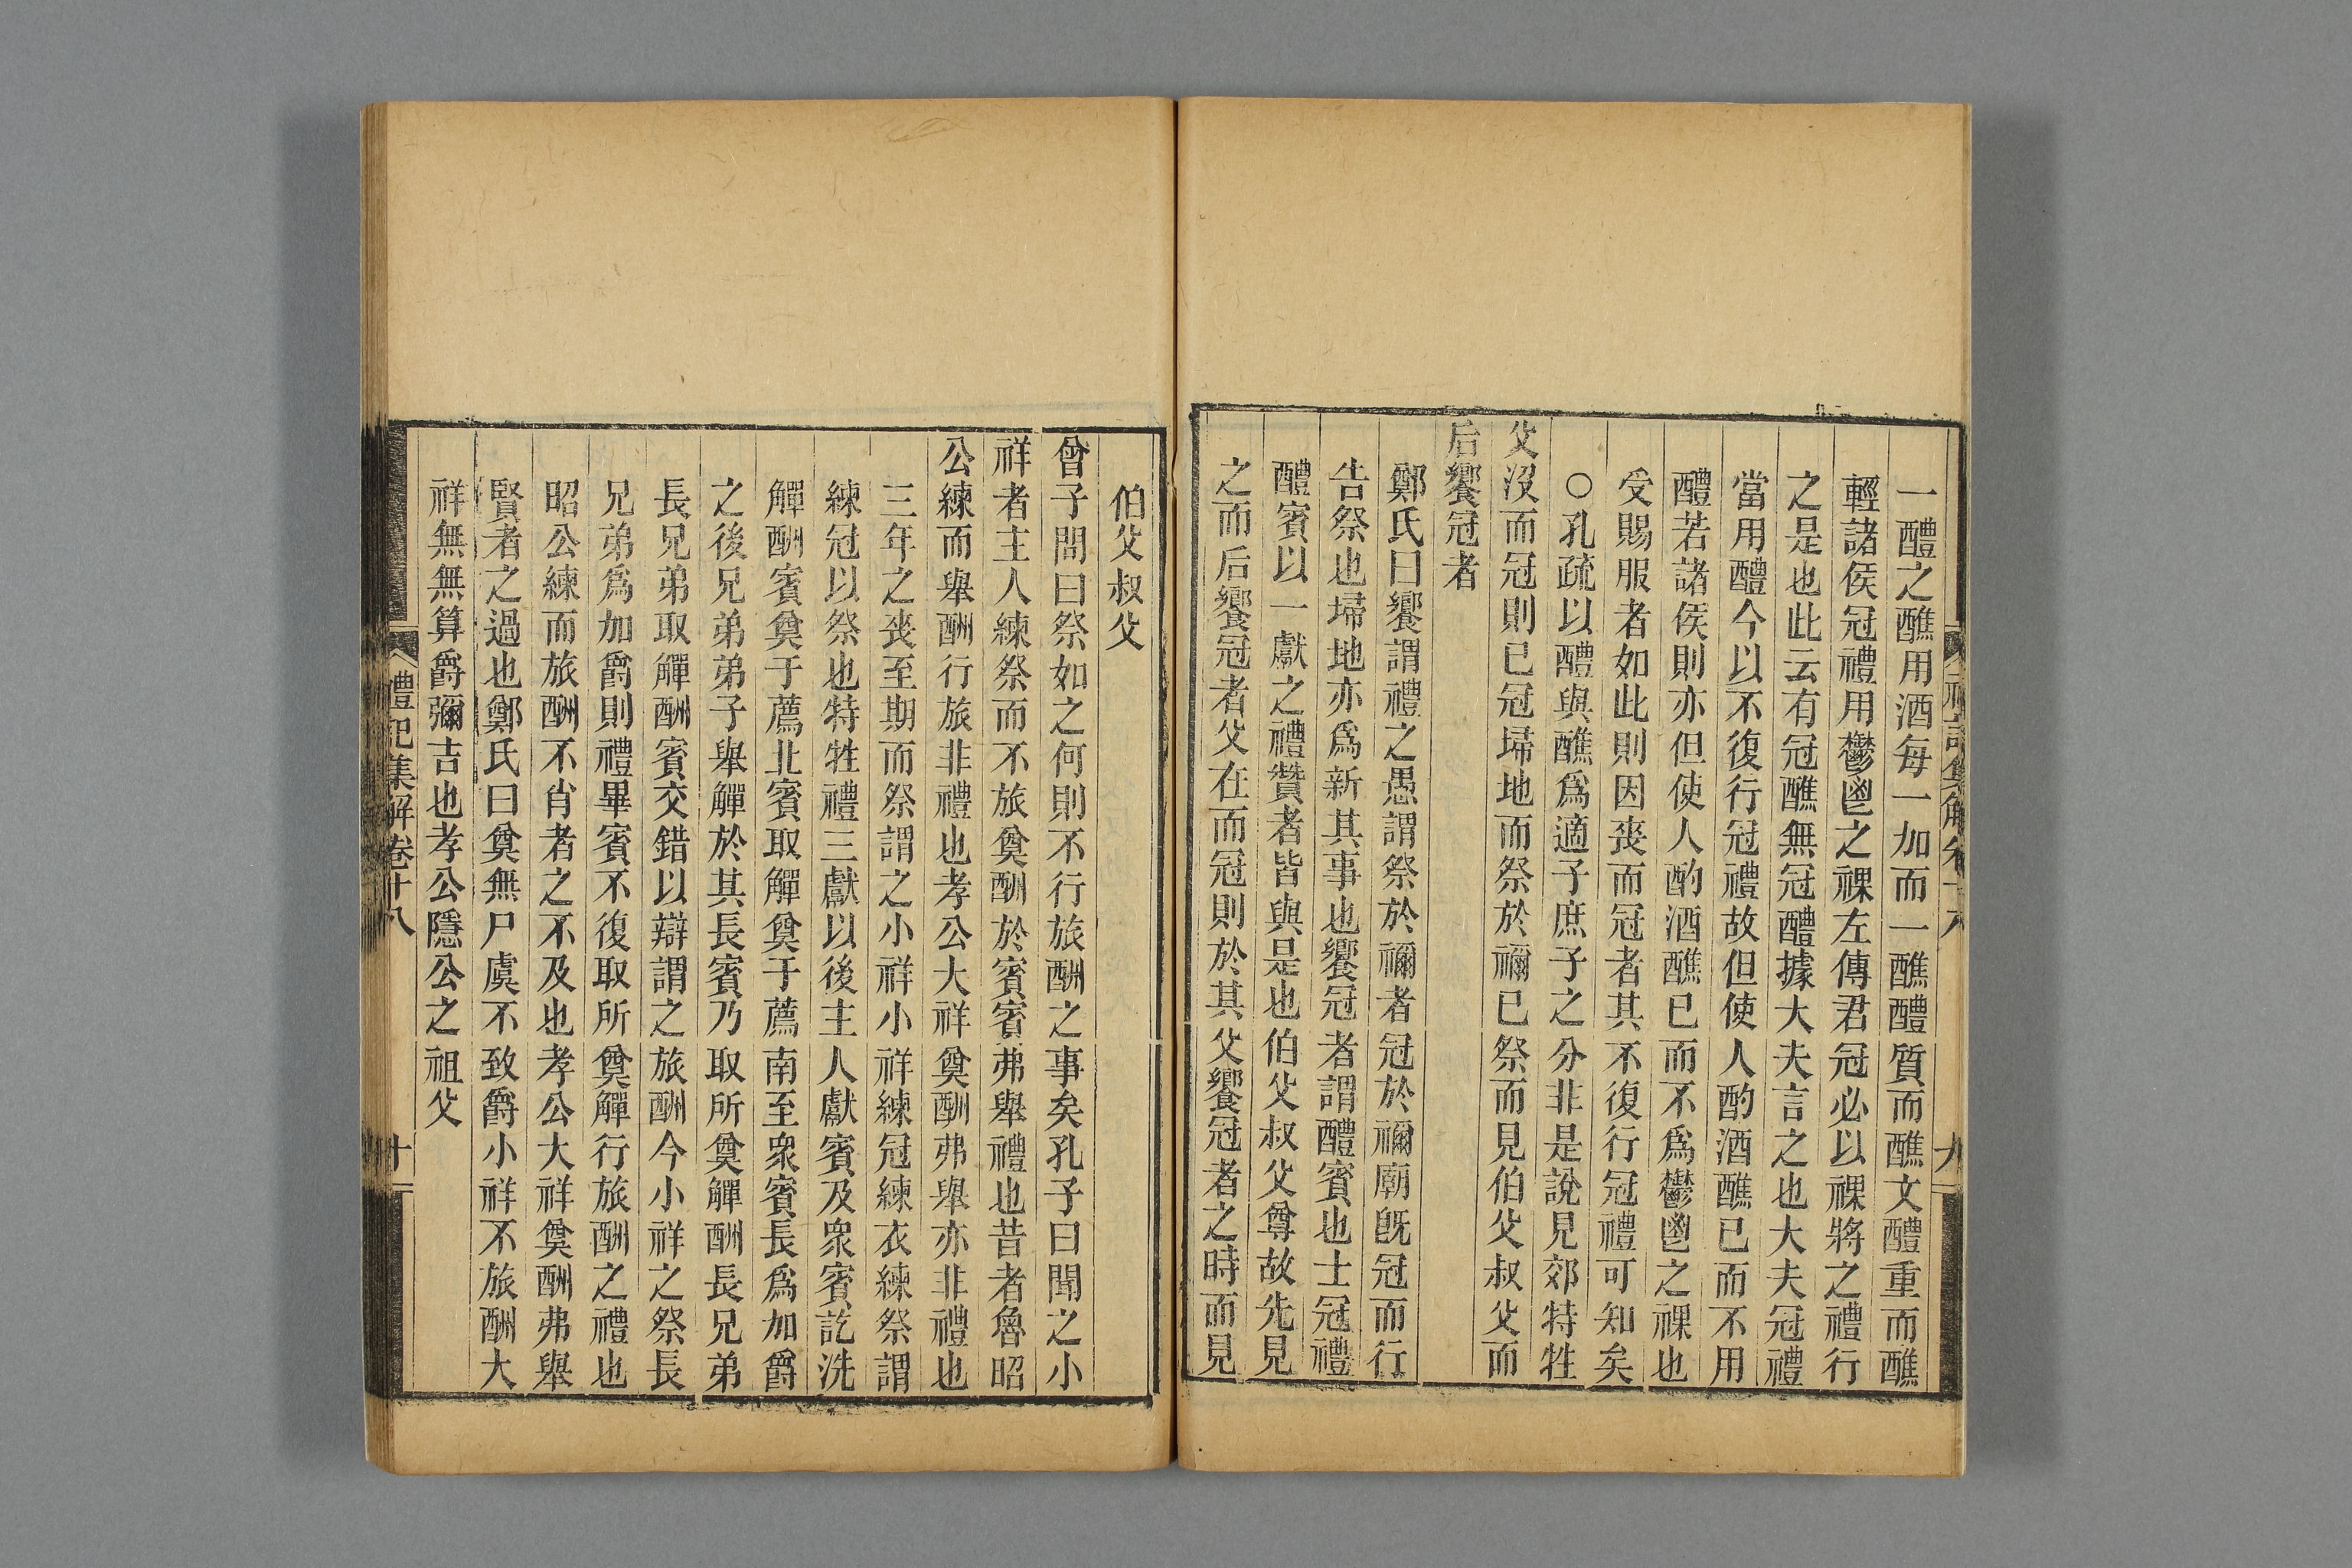 一醴之醮用酒每一加而一醮醴質而醮文醴重而醮
輕諸侯冠禮用鬱鬯之祼左傳君冠必以祼將之禮行
之是也此云有冠醮無冠醴據大夫言之也大夫冠禮
當用醴今以不復行冠禮故但使人酌酒醮已而不用
醴若諸侯則亦但使人酌酒醮已而不爲鬱鬯之祼也
受賜服者如此則因喪而冠者其不復行冠禮可知矣
○孔疏以醴與醮爲適子庶子之分非是說見郊特牲
父沒而冠則已冠埽地而祭於禰已祭而見伯父叔父而
后饗冠者
鄭氏曰饗謂禮之愚謂祭於禰者冠於禰廟旣冠而行
告祭也埽地亦爲新其事也饗冠者謂醴賓也士冠禮
醴賓以一獻之禮贊者皆與是也伯父叔父尊故先見
之而后饗冠者父在而冠則於其父饗冠者之時而見
伯父叔父
曾子問曰祭如之何則不行旅酬之事矣孔子曰聞之小
祥者主人練祭而不旅奠酬於賓賓弗舉禮也昔者魯昭
公練而舉酬行旅非禮也孝公大祥奠酬弗舉亦非禮也
三年之喪至期而祭謂之小祥小祥練冠練衣練祭謂
練冠以祭也特牲禮三獻以後主人獻賓及衆賓訖洗
觶酬賓奠于薦北賓取觶奠于薦南至衆賓長爲加爵
之後兄弟弟子舉觶於其長賓乃取所奠觶酬長兄弟
長兄弟取觶酬賓交錯以辯謂之旅酬今小祥之祭長
兄弟爲加爵則禮畢賓不復取所奠觶行旅酬之禮也
昭公練而旅酬不肖者之不及也孝公大祥奠酬弗舉
賢者之過也鄭氏曰奠無尸虞不致爵小祥不旅酬大
祥無無算爵彌吉也孝公隱公之祖父
禮記集解卷十八
十